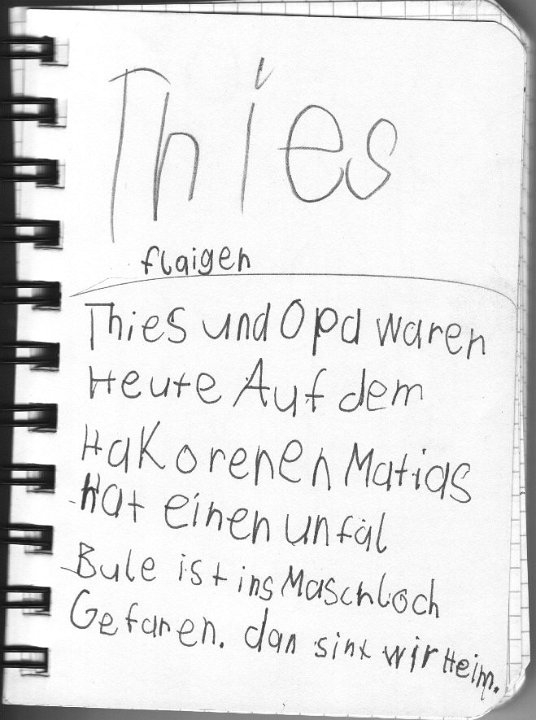 Thies
flaigen
Thies und Opa waren
Heute Auf dem
Hakorenen Matias
Hat einen unfal
Bule ist ins Maschloch
Gefaren. dan sint wir Heim.